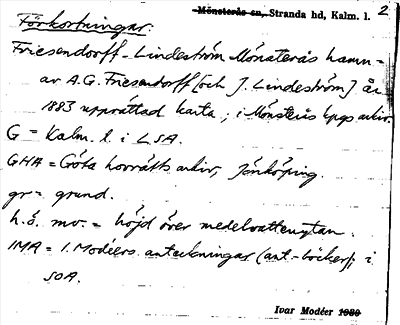 Mönsterås sn, Stranda hd, Kalm. l. 2
Förkortningar.
Friesendorff-Lindeström Mönsterås hamn =
av A.G. Friesendorff [och J. Lindeström] år
1883 upprättad karta, i Mönsterås kpgs arkiv.
G = Kalm. l. i LSA.
GHA = Göta hovrätts arkiv, Jönköping.
gr = grund.
h.ö.mv. = höjd över medelvattenytan.
IMA = I. Modéers anteckningar (ant.-böcker); i
SOA.
Ivar Modéer 1980